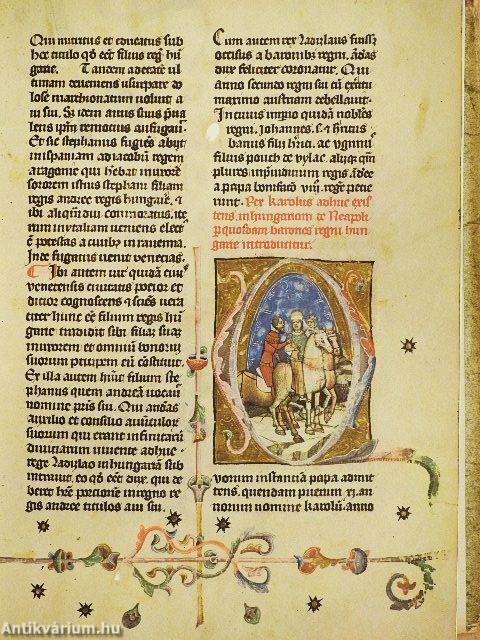 Qui nutritus et educatus sub
hoc titulo qđ eēt filius regis hun
garie. Tandem ad etatē ul
timam deveniens usurpare do
lose marchionatum voluit a
vi sui. Si idem avus suus siquā
lens ipm remotius aufugari.
Et sic stephanus fugiēs abyt
in ispaniam ad iacobum regem
aragonie qui hēbat in uxorē
sororem istius stephani filiam
regis andree regis hungarie, et
ibi aliqm diu cōmoratus, ite
rum in ytaliam veniens elect9
ē potestas a civib9 in ravenna.
Inde fugatus venit venecias.
Ibi autem vir quidā civis
venetensis civitatis potior et
ditior cognoscens et sciēs vera
citer hunc eē filium regis hū
garie tradidit sibi filiā suā
in uxorem et omnium bonorū
suorum participem eū cōstituit.
Ex illa autem hūit filium ste
phanus quem andreā vocavit
nomine pris sui. Qui andreas
auxilio et consilio avūculorū
suorum qui erant infinitarū
divitiarum vivente adhuc
rege Ladizlao in hungariā sub
intravit, eo qđ eēt dux, qui de
beret hēre portionem in regno re
gis andree titulos avi sui.
Cum autem rex Ladizlaus fuisset
occisus a baronib9 regni, andreas
dux feliciter coronatur. Qui
anno secundo regni sui cū exercitu
maximo austriam debellavit.
In cuius imperio quidā nobiles
regni, Iohannes s. et Henricus
banus filii Henrici, ac ugrinus
filius pouch de vylac, alyiq3 qm
plures in preiudicium regis andree
a papa bonifacio viii. regē petie
runt. Rex Karolus adhuc exis
tens, in hungariam de Neapoli
per quosdam barones regni hun
garie introducitur.
vorum instantia papa admit
tens, quendam puerum xi. an
norum nomine karolū, anno
Antikvárium.hu